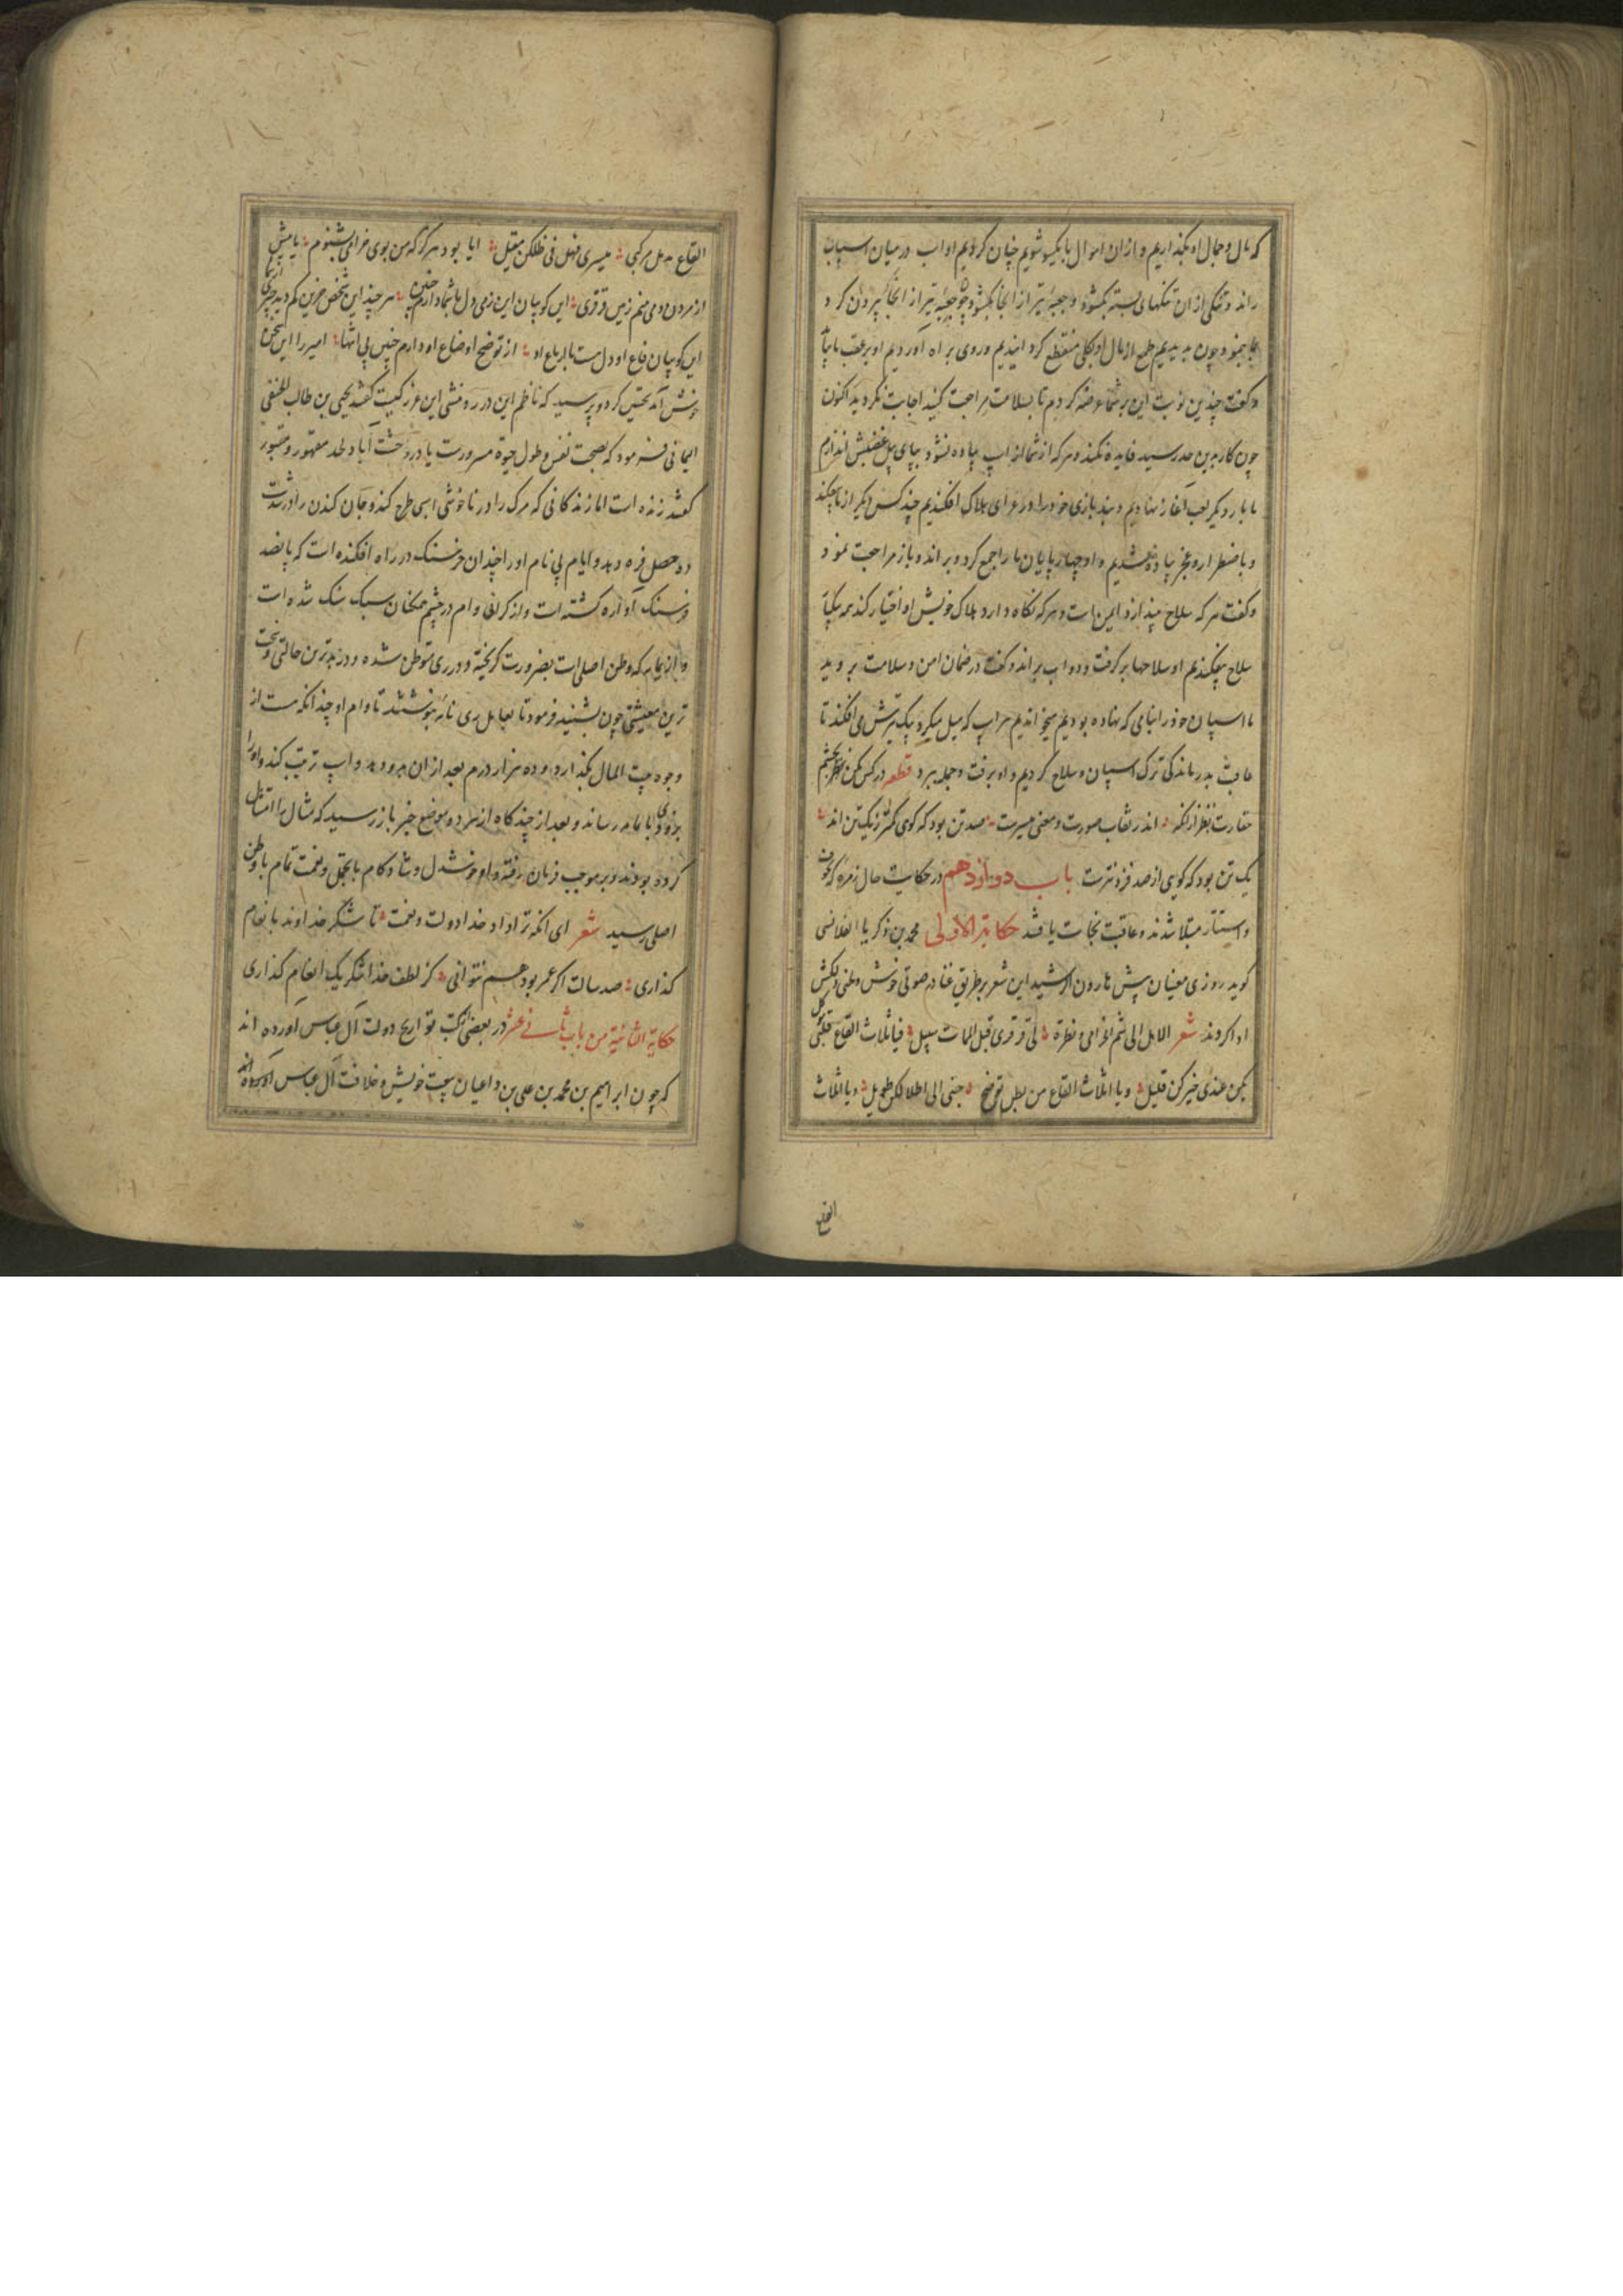 که مال و جمال او بگذاریم و ازان اموال بایکسو شویم چنان کردیم او اسب در میان اسپان
راند و تنکی از ان تنکهای بسته بکشود و جعبهٔ تیر از انجا بکشود و جعبهٔ تیر از انجا بیرون کرد
بما بنمود چون بدیدیم طمع از مال او بکلی منقطع کردانیدیم و روی براه اوردیم او بر عقب ما
و کفت چندین نوبت این بر شما عرضه کردم تا بسلامت مراجعت کنید اجابت نکردید اکنون
چون کار بدین حد رسید فایده نکند و هر که از شما از اسپ پیاده نشود بپای پیل غضبش اندازم
ما بار دیکر لعب آغاز نهادیم و بازی خود را در عرای هلاک افکندیم چند کس دیکر از ما بیفکند
و باضطرار و عجز پیاده شدیم و او چهارپایان ما را جمع کرد و براند و باز مراجعت نمود
و کفت هر که سلاح بیندازد ایمن است و هر که نکاه دارد هلاک خویش او اختیار کند همه یکبار
سلاح بیفکندیم او سلاحها بر کرفت و دواب براند و کفت در ضمان امن و سلامت بروید
ما اسپان خود را بنامی که نهاده بودیم میخواندیم هر اسپ که میل میکرد بیک تیرش می افکند تا
عاقبت بدرماندکی ترک اسپان و سلاح کردیم و او برفت و جمله ببرد قطعه در کس مکن بچشم
حقارت نظر ازانکه اندر نقاب صورت و معنی میسرست صد تن بود که کوی کمتر ز یک تن اند
یک تن بود که کویی از صد فزونترست باب دوازدهم در حکایت حال زمره که بخوف
و استتار مبتلا شدند و عاقبت نجات یافتند حکایة الاولی محمد بن زکریا الغلانسی
کوید روزی مغنیان پیش هارون الرشید این شعر بر طریق غنا در صوتی خوش و لحنی دلکش
ادا کردند شعر الا هل الی شم الخزامی و نظرة الی قرقری قبل الممات سبیل فیا اثلاث القاع قلبی موکل
بکن عندی خیرکن قلیل و یا اثلاث القاع من بطن توضح حنینی الی اطلالکن طویل و یا اثلاث
القاع
القاع هل مرکبی میسری فهل فی ظلکن مقیل ایا بود هرکز که من بوی خزامی بشنوم یا پیش
از مردن دمی بینم زمین قرقری این کو بیان این زمی دل با شما دارم حنین هر چند این شخص حزین کم دید چیزی از شما
این کو بیان قاع او دل هست با ارباع او از توضح اوضاع او دارم حنین بی انتها امیر را این سخن
خوش آمد تحسین کرد و پرسید که ناظم این درر و منشی این غرر کیست کفتند یحیی بن طالب الحنفی
الیمانی فرمود که بصحت نفس و طول حیوة مسرورست یا در وحشت آباد لحد مقهور و مقبور
کفتند زنده است اما زندکانی که مرک را در ناخوشی اسی طرح کند و جان کندن را در شدت
دو حصل فره دهد و ایام بی نام او را چندان خرسنک در راه افکنده است که پانصد
فرسنک آواره کشته است و از کرانی وام در چشم همکنان سبک سنک شده است
و از یمامه که وطن اصلی است بضرورت کریخته و در ری متوطن شده و در بدترین حالتی و سخت
ترین معیشتی چون بشنید فرمود تا بعامل ری نامه بنوشتند تا وام او چندانکه هست از
وجوه بیت المال بکذارد و ده هزار درم بعد ازان بدو دهد و اسپ ترتیب کند و او را
بزودی با یمامه رساند و بعد از چند کاه از نهروه موضع خبر باز رسید که مثال را امتثال
کرده بودند و بر موجب فرمان رفته و او خوشدل و شاد کام با تجمل و نعمت تمام با وطن
اصلی رسید شعر ای انکه ترا داد خدا دولت و نعمت تا شکر خداوند بانعام
کذاری صد سالت اکر عمر بود هم نتوانی کز لطف خدا شکر یک انعام کذاری
حکایة الثانیة من باب ثانی عشر در بعضی کتب تواریخ دولت آل عباس آورده اند
که چون ابراهیم بن محمد بن علی بن داعیان بیعت خویش و خلافت آل عباس